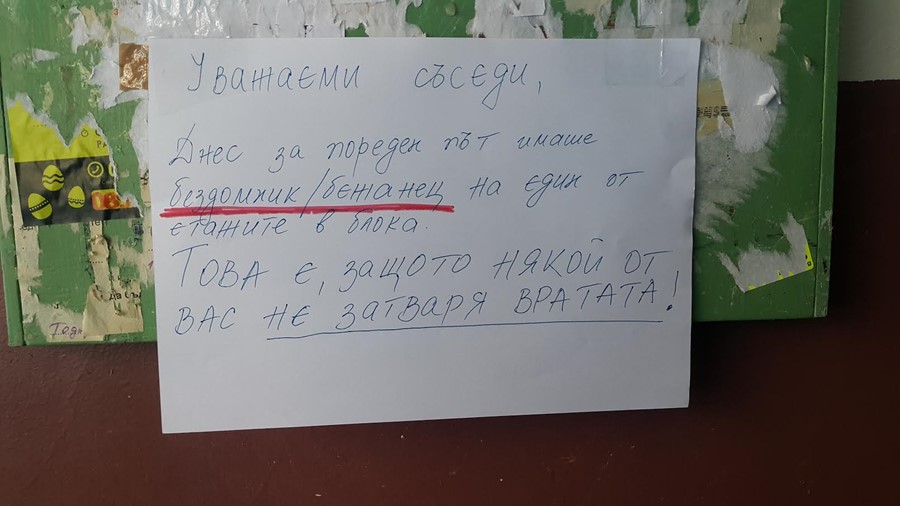 Уважаеми съседи,
Днес за пореден път имаше
бездомник/бежанец на един от
етажите в блока.
ТОВА Е, ЗАЩОТО НЯКОЙ ОТ
ВАС НЕ ЗАТВАРЯ ВРАТАТА!